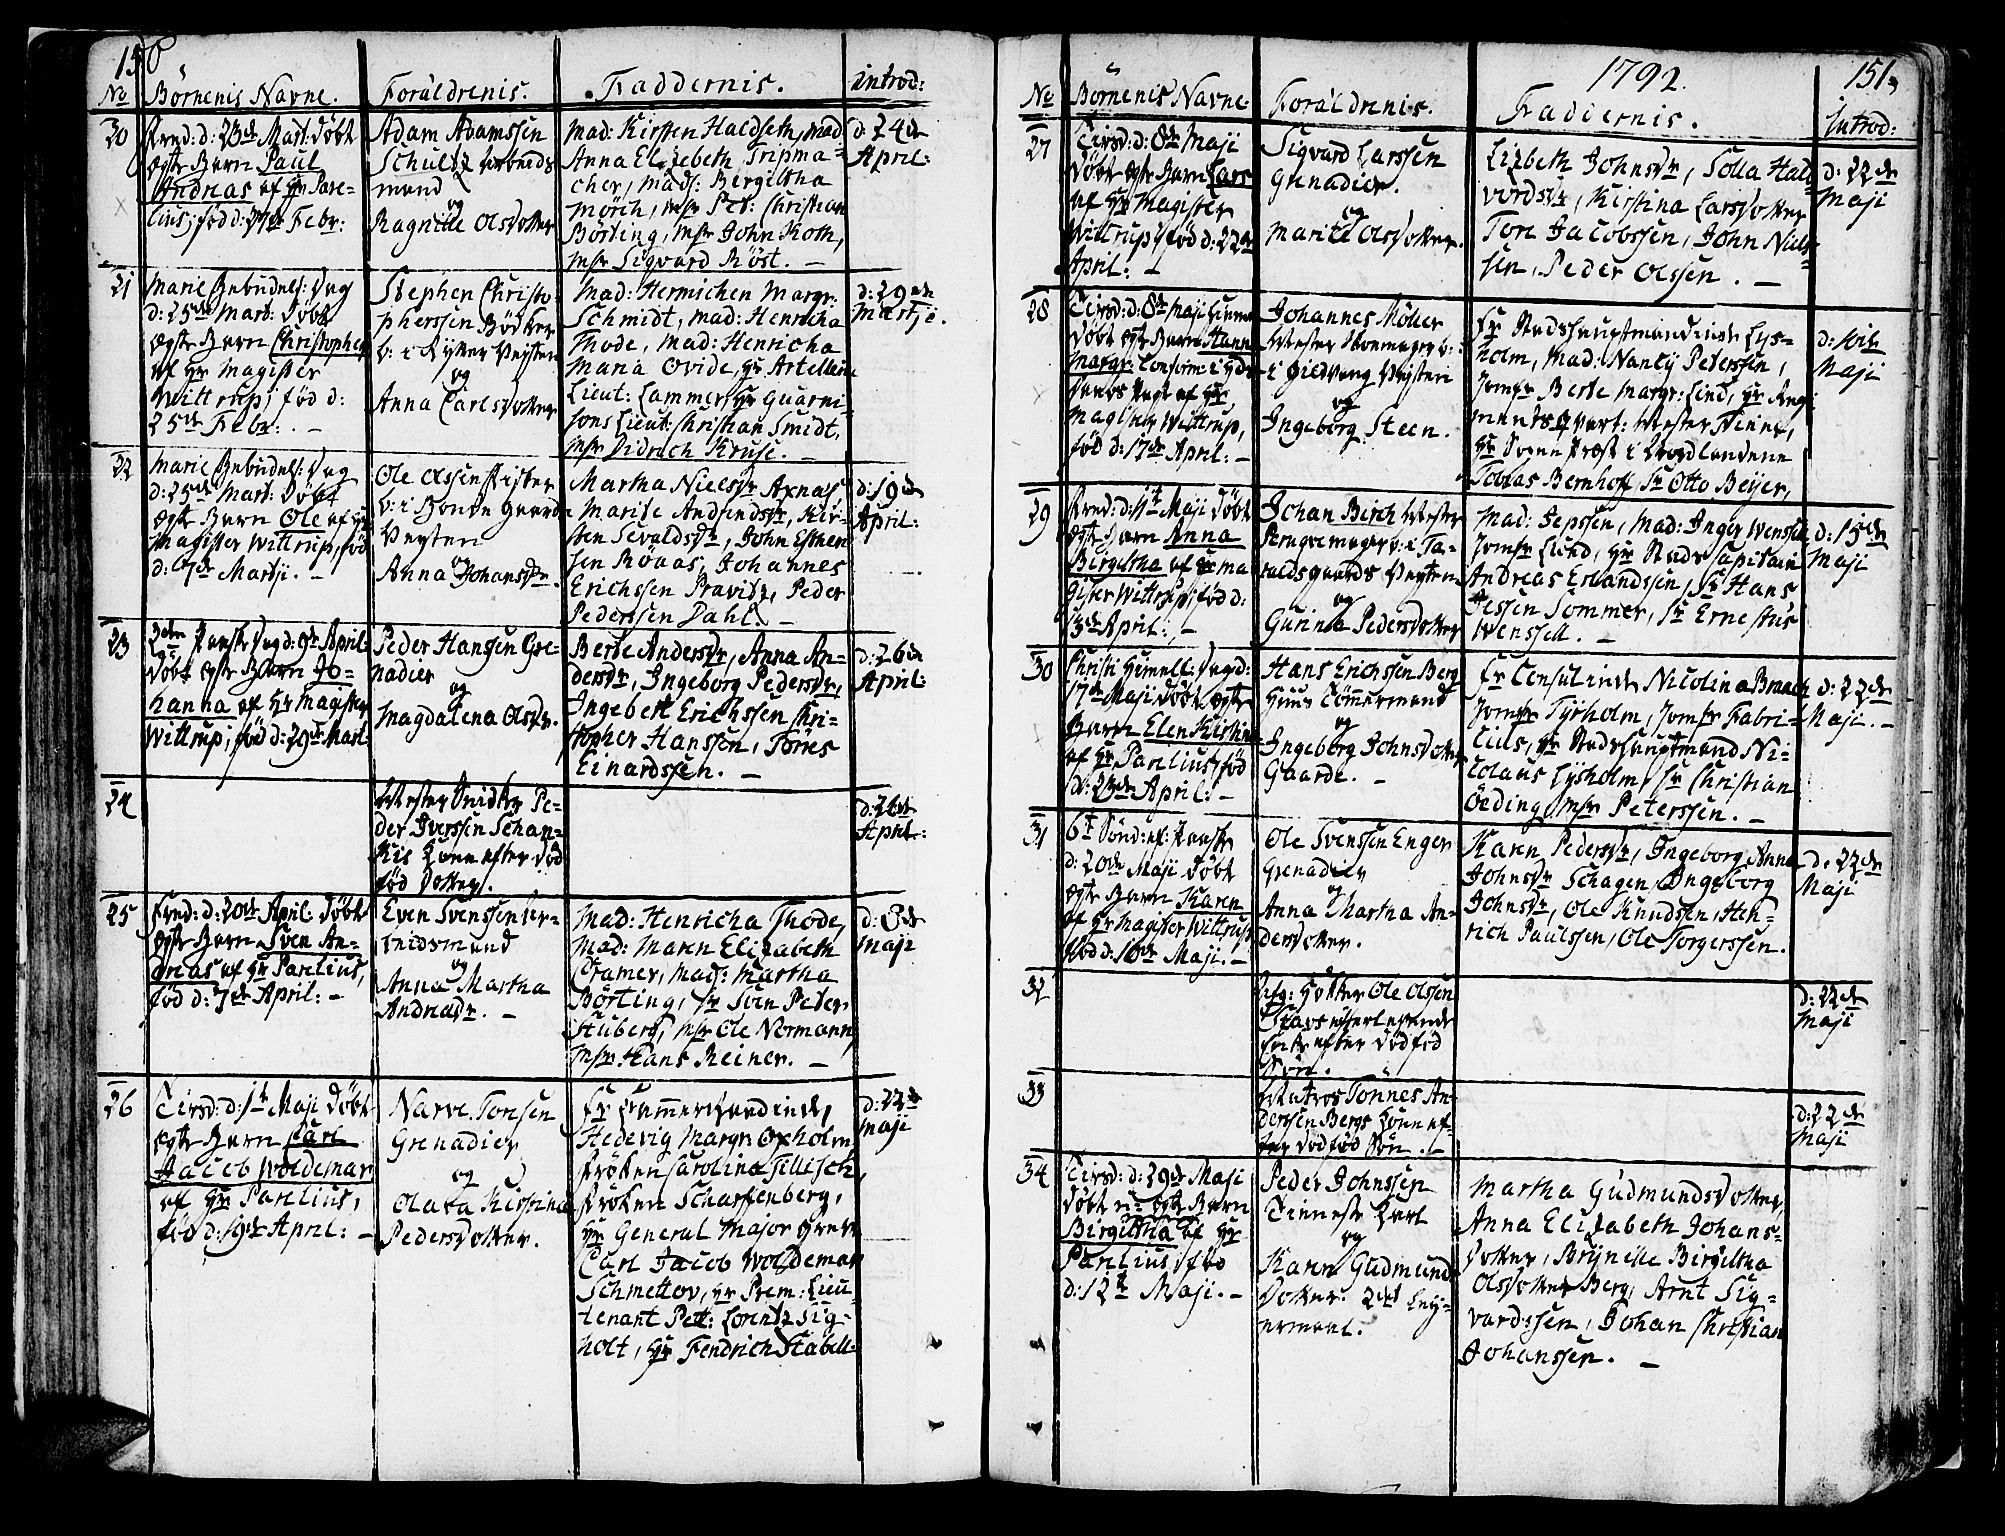 150
No Börnenis Navne. Forældrenis. Faddernis. introd:
20
Fred: d: 23de Mart: døbt
ægte Barn Paul
Andreas af Hr Pare-
lius, fød d: 27de Febr:
Adam Adamssen
Schultz Arbeids
mand
og
Ragnille Olsdotter
Mad: Kirsten Haldseth, mad:
Anna Elisebeth Tripma-
cher, mads: Bergiltha
Mörch, msr Pet: Christian
Börting, msr John Koth,
msr Sigvard Röst. —
d: 24de
April:
21
Mariæ Bebudels: Dag
d: 25de Mart: døbt
ægte Barn Christopher
af Hr Magister
Wittrup; fød d:
25de Febr: . —
Stephen Christo-
pherssen Bödker
b: i Rytter Veyten
og
Anna Carlsdotter
Mad: Hermichen Margr:
Schmidt, Mad: Henricha
Thode, Mad: Henricha
Maria Ovide, Hr Artellerie
Lieut: Lammers, Hr Guarni-
sons Lieut: Christian Smidt,
msr Didrich Kruse. —
d: 29de
Martji.
22
Mariæ Bebudels: Dag
d: 25de Mart: døbt
ægte Barn Ole af Hr
Magister Wittrup, fød
d: 7de Martji. —
Ole Olssen Fisker
b: i Bonde Gaards
Veyten
og
Anna Johansdr.
Martha Nielsdr Axnas,
Marite Amundsdr, Kir-
sten Sevaldsdr, John Esthen
sen Röraas, Johannes
Erichssen Pravitz, Peder
Pederssen Dahl. —
d: 19de
April:
23
2den Paaske Dag d: 9de April:
døbt ægte Barn Jo-
hanna af Hr Magister
Wittrup; fød d: 29de Mart:
Peder Hansen Gre-
nadier
og
Magdalena Olsdr.
Berte Andersdr, Anna An-
dersdr, Ingeborg Pedersdr,
Ingebert Erichssen, Chri-
stopher Hanssen, Törres
Einardssen. —
d: 26de
April:
24
Mester Snidker Pe-
der Iverssen Schan-
kis Kone efter død
fød Dotter.
d: 26de
April:
25
Fred: d: 20de April: døbt
ægte Barn Sven An-
dreas af Hr Parelius,
fød d: 7de April: —
Even Svenssen Ar-
beidsmand
og
Anna Martha
Andreadr. —
Mad: Henricha Thode,
Mad: Maren Elizabeth
Cramer, Mad: Martha
Börting, Sr Sven Peter
Stuberg, msr Ole Normann,
msr Hans Reiner. —
d: 8de
Maji
26
Tirsd: d: 1te Maji døbt
ægte Barn Carl
Jacob Woldemar
af Hr Parelius,
fød d: 19de April: —
Narve Tonsen
Grenadier
og
Olava Kirstina
Pedersdotter.
Fr Cammerherinde,
Hedevig Margr: Oxholm,
Fröken Carolina Tillisch,
Fröken Scharffenberg,
Hr General Major Greve
Carl Jacob Woldemar
Schmettov, Hr Prem: Lieu-
tenant Pet: Lorentz Sig-
holt, Hr Fendrich Stabell.
d: 22de
Maji
1792. 151.
No Börnenis Navne. Forældrenis. Faddernis. Introd:
27
Tirsd: d: 8de Maji
døbt ægte Barn Lars
af Hr Magister
Wittrup, fød d: 22de
April: —
Sigvard Larssen
Grenadier.
og
Marite Olsdotter.
Lizbeth Johnsdr, Solla Hal-
vordsdr, Kirstina Larsdotter
Tore Jacobssen, John Niels-
sen, Peder Olssen. —
d: 22de
Maji
28
Tirsd: d: 8de Maji hiemme
døbt ægte Barn Hanna
Margr: Confirm: i
af Hr
Magister Wittrup,
fød d: 17de April: —
Johannes Möller
Mester Skomager b:
i Gieldvang Veyten
og
Ingeborg Steen.
Fr Stadshauptmandinde Lys-
holm, Mad: Nancy Peterssen,
Jomfr Berte Margr: Lind, Hr Regi-
ments Qvart: Mester Finne,
Hr Sogne Præst i Nordlandene
Tobias Bernhoff, Sr Otto Beyer,
Maji
29
Fred: d: 11te Maji døbt
ægte Barn Anna
Birgiltha af Hr Ma-
gister Wittrup; fød d:
13de April: —
Johan Birch Mester
Parugvemager b: i Ta-
raldsgaards Veyten
og
Gurina Pedersdotter
Mad: Jepssen, Mad: Inger Wenssell
Jomfr Lund, Hr Stads Capitain
Andreas Erlandssen, Sr Hans
Jessen Sommer, Sr Ernestus
Wenssell. —
d: 15de
Maji
30
Christi Himmelf: Dag d:
17de Maji døbt ægte
Barn Elen Kirstina
af Hr Parelius, fød
d: 23de April: —
Hans Erichssen Berg
Huus Tömermand
og
Ingeborg Johnsdotter
Gaarde. —
Fr Consulinde Nicolina Broach
Jomfr Tyrholm, Jomfr Fabri-
tius, Hr Stadshauptmand Ni-
colaus Lysholm, Sr Christian
Öeding, msr Peterssen. —
d: 22de
Maji. —
31
6te Sönd: ef: Paaske
d: 20de Maji døbt
ægte Barn Karen
af Hr Magister Wittrup
fød d: 16de Maji. —
Ole Svenssen Enger
Grenadier
og
Anna Martha An-
dersdotter.
Karen Pedersdr, Ingeborg Anna
Johnsdr Schagen, Ingeborg
Johnsdr, Ole Knudssen, Hen-
rich Paulssen, Ole Torgerssen.
d: 22de
Maji
32
Ole Olssen
efter dødfød
Søn.
d: 22de
Maji
33
Matros Tönnes An-
derssen Bergs Kone ef-
ter dødfød Søn. —
d: 22de
Maji
34
Tirsd: d: 29de Maji
døbt u-ægte Barn
Birgiltha af Hr
Parelius, fød
d: 12te Maji. —
Peder Johnssen
Tieneste Karl
og
Karen Gudmunds
Dotter. 2det Ley-
ermaal.
Martha Gudmundsdotter,
Anna Elizabeth Johans-
dotter, Brynille Birgiltha
Olsdotter Berg, Arnt Sig-
vardssen, Johan Christian
Johanssen. —